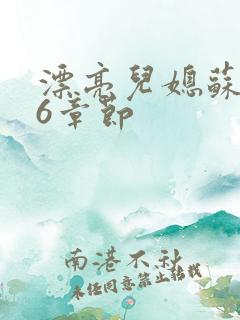 漂亮兒媳蘇
6章節
南港不秋
未经同意禁止转载